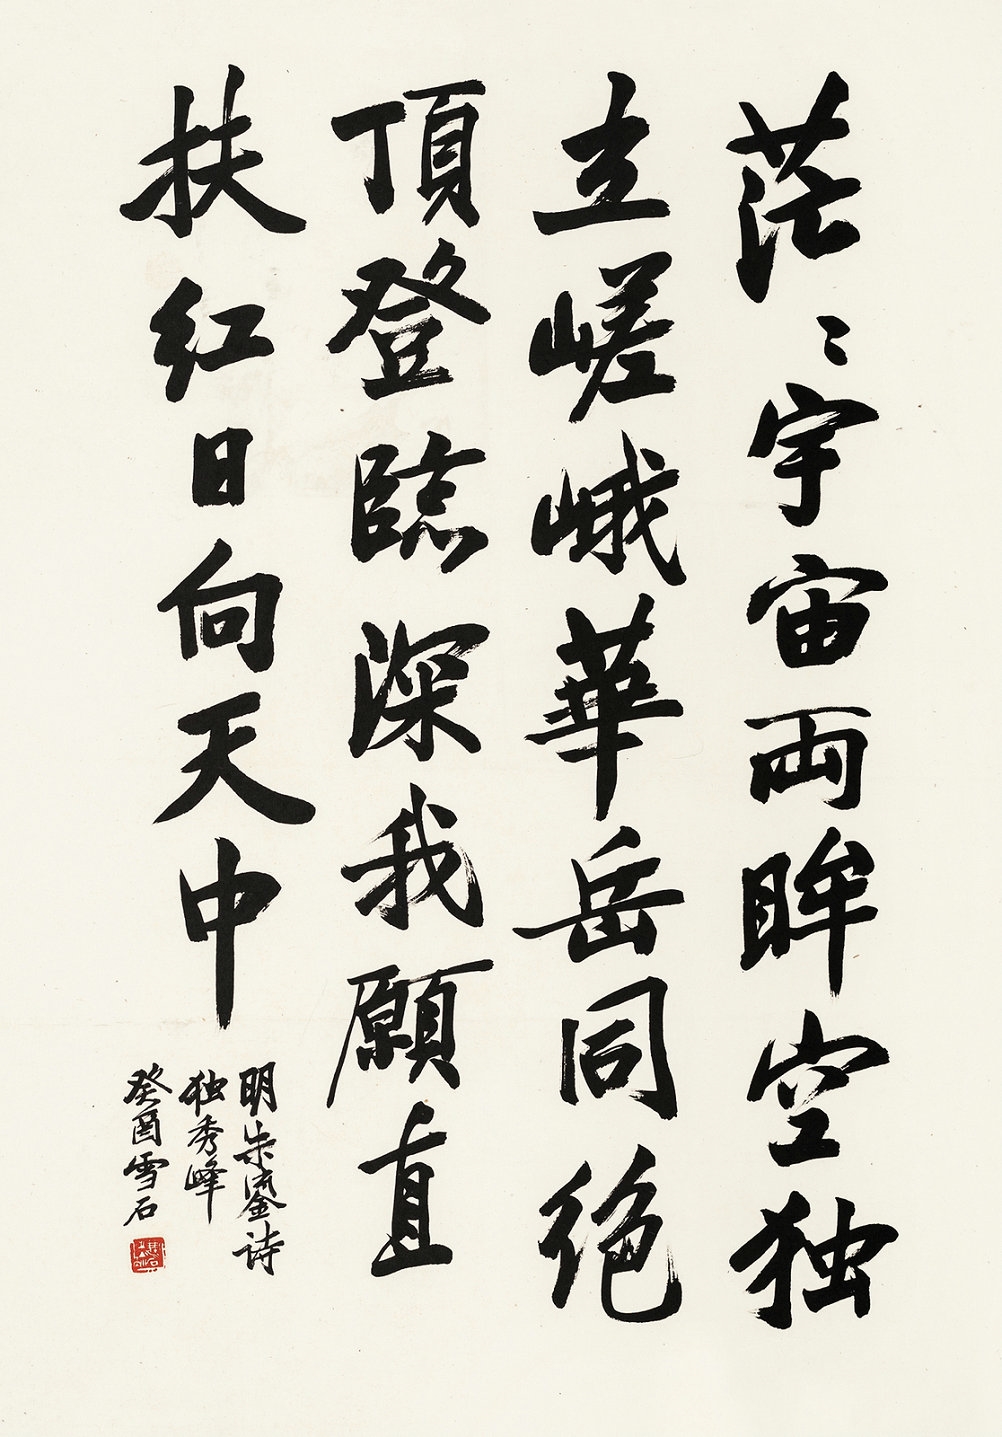 茫〻宇宙両眸空独
立嵯峨華岳同绝
頂登臨深我願直
扶红日向天中
明朱鎏诗
独秀峰
癸酉雪石